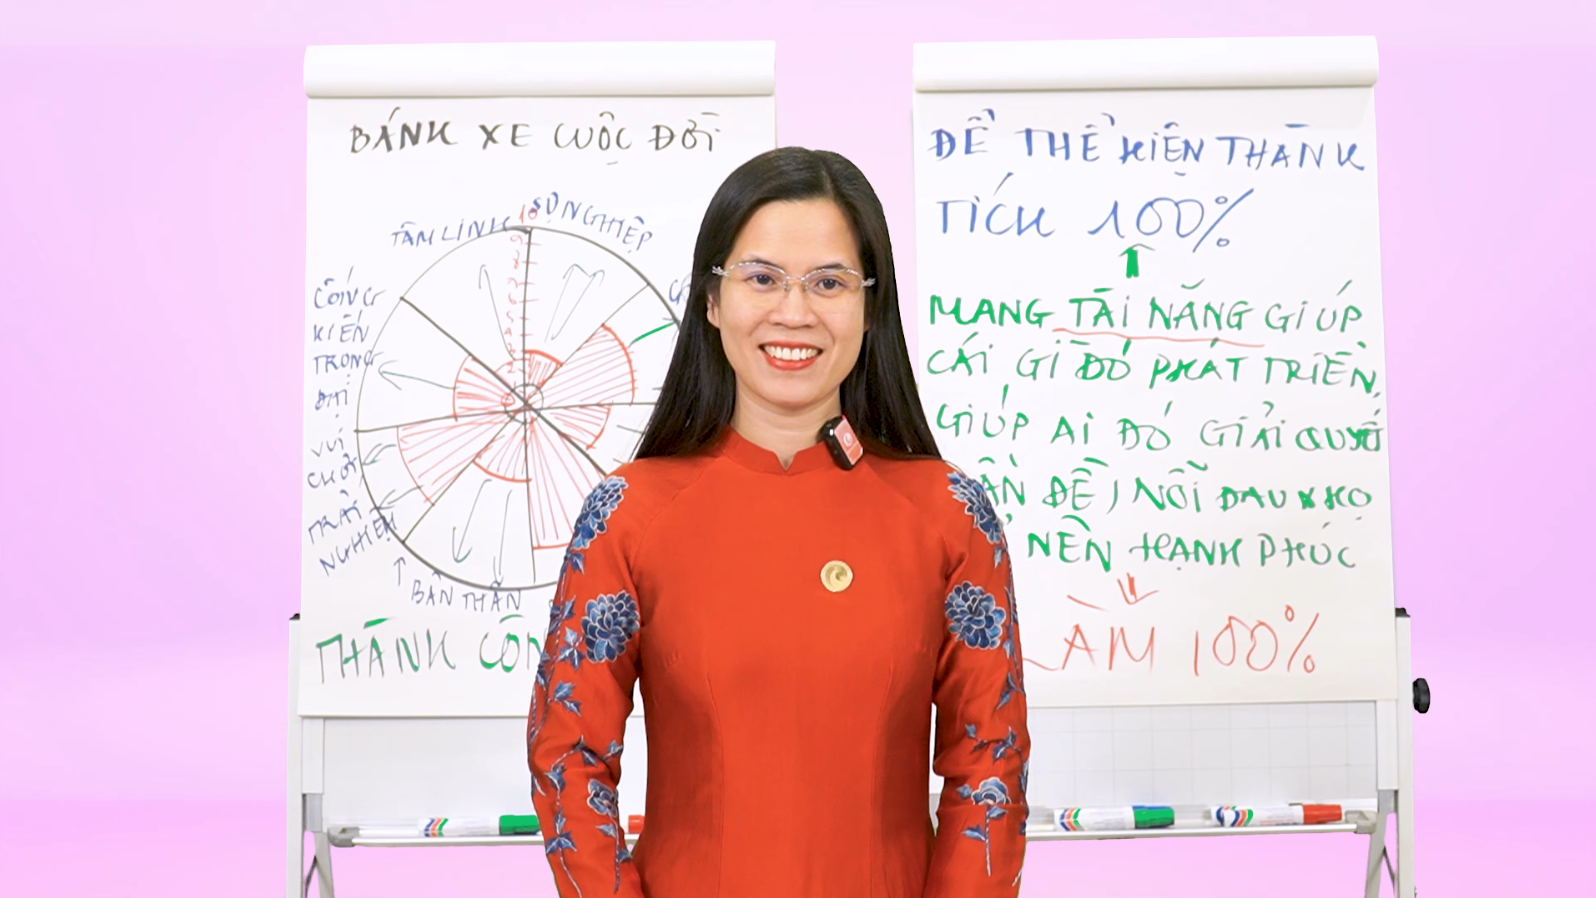 BÁNH XE CUỘC ĐỜI
TÂM LINH
SỰ NGHIỆP
10
9
8
7
6
5
4
3
2
CỐNG
HIẾN
TRONG
ĐẠI
VUI
CHƠI
TRẢI
NGHIỆM
BẢN THÂN
THÀNH CÔN
ĐỂ THỂ HIỆN THÀNH
TÍCH 100%
MANG TÀI NĂNG GIÚP
CÁI GÌ ĐÓ PHÁT TRIỂN,
GIÚP AI ĐÓ GIẢI QUYẾT
ẤN ĐỀ, NỖI ĐAU KHỔ
NÊN HẠNH PHÚC
LÀM 100%